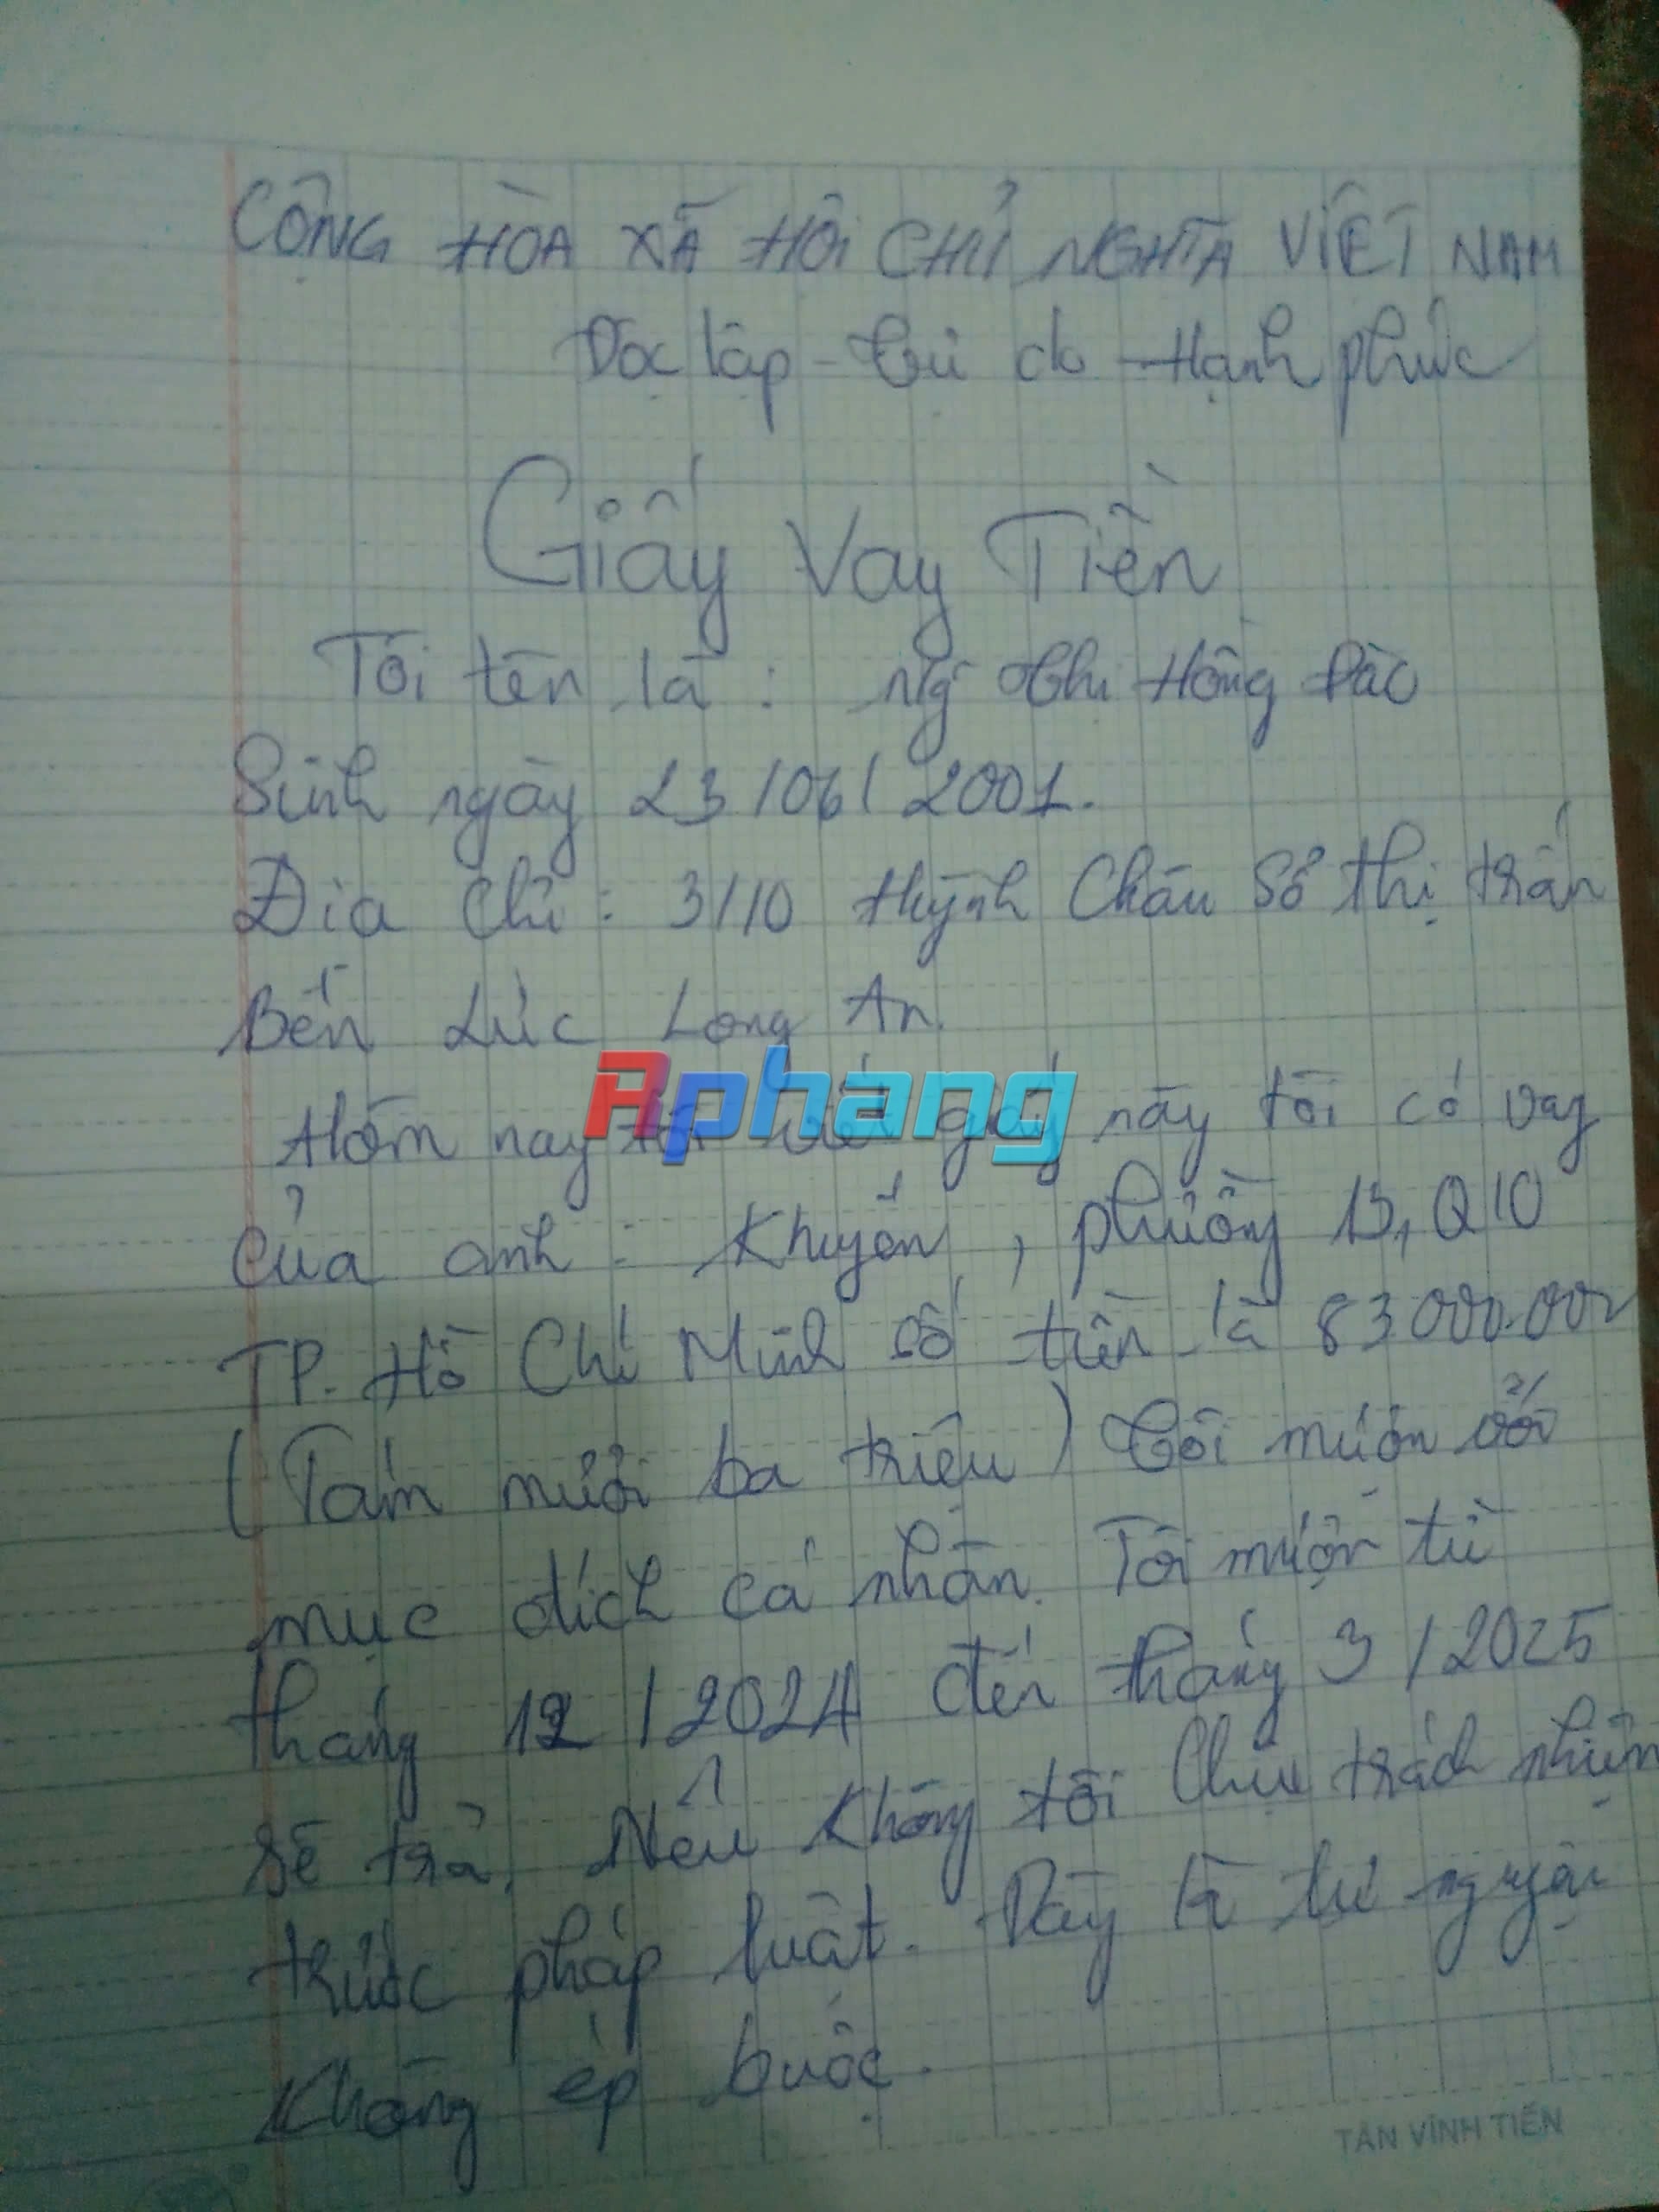 CỘNG HÒA XÃ HỘI CHỦ NGHĨA VIỆT NAM
Độc lập - Tự do - Hạnh phúc
Giấy Vay Tiền
Tôi tên là : Ng Thị Hồng Đào
Sinh ngày 23/06/2001.
Địa chỉ : 3/10 Huỳnh Châu Sổ thị trấn
Bến Lức Long An.
Rphang
Hôm nay tôi viết giấy này tôi có vay
của anh : Khuyến, phường 15, Q10
TP. Hồ Chí Minh số tiền là 83.000.000
(Tám mươi ba triệu) tôi mượn với
mục đích cá nhân. Tôi mượn từ
tháng 12/2024 đến tháng 3/2025
sẽ trả. Nếu không tôi chịu trách nhiệm
trước pháp luật. Đây là tự nguyện
không ép buộc.
TÂN VĨNH TIẾN